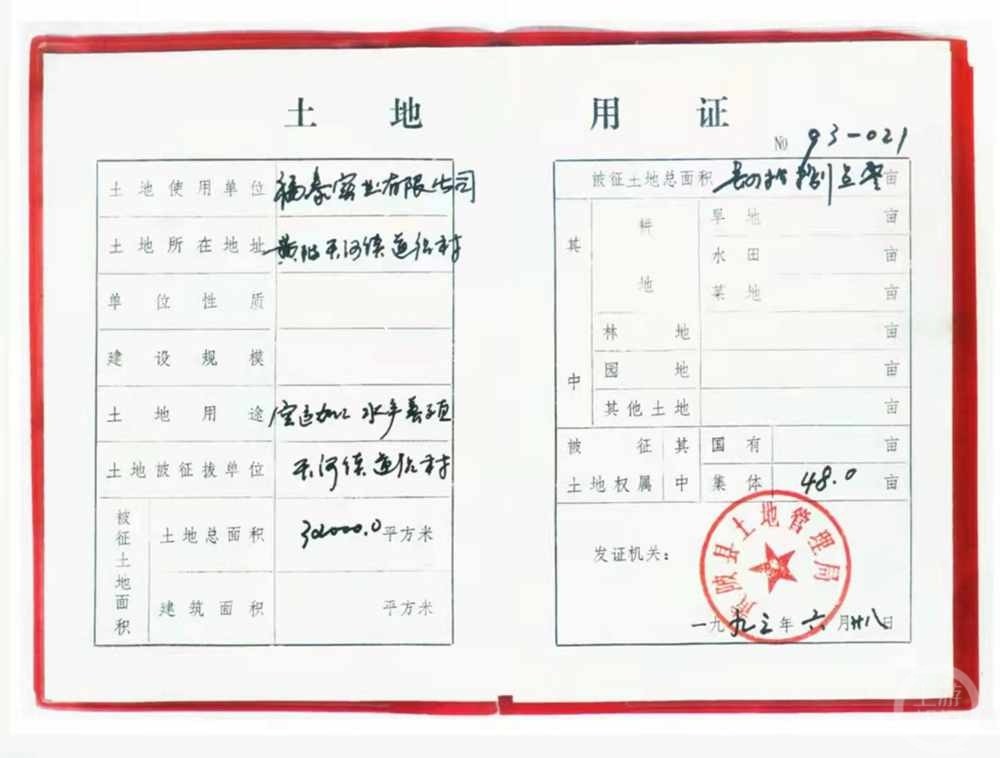 土地用证
№ 93-021
土地使用单位 福泰实业有限公司
土地所在地址 黄陂天河镇道伦村
单位性质
建设规模
土地用途 水产养殖
土地被征拨单位 天河镇道伦村
被征土地面积
土地总面积 平方米
建筑面积 平方米
被征土地总面积 亩
其中
耕地
旱地 亩
水田 亩
菜地 亩
林地 亩
园地 亩
其他土地 亩
被征土地权属
其中
国有 亩
集体 48.0 亩
发证机关：
黄陂县土地管理局
一九九三年六月廿八日
上游